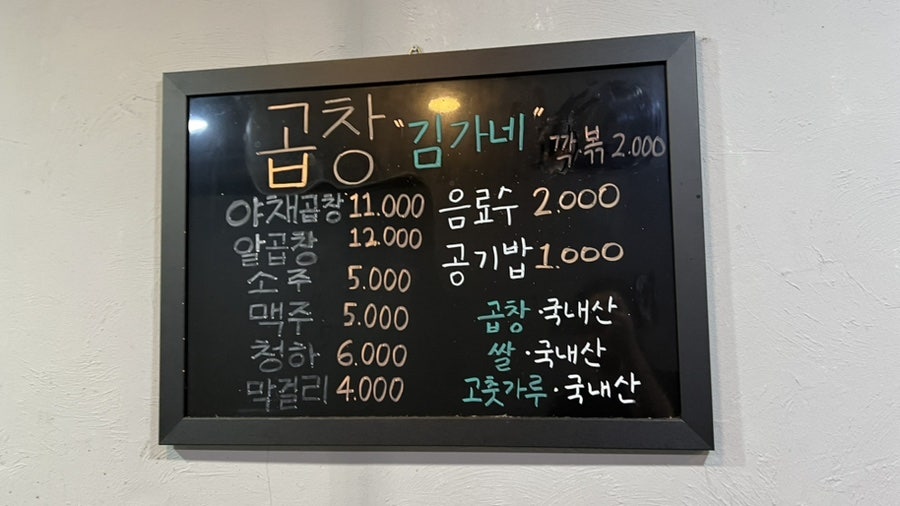 곱창 "김가네"
깍.볶 2.000
야채곱창 11.000
알곱창 12.000
소주 5.000
맥주 5.000
청하 6.000
막걸리 4.000
음료수 2.000
공기밥 1.000
곱창·국내산
쌀·국내산
고춧가루·국내산